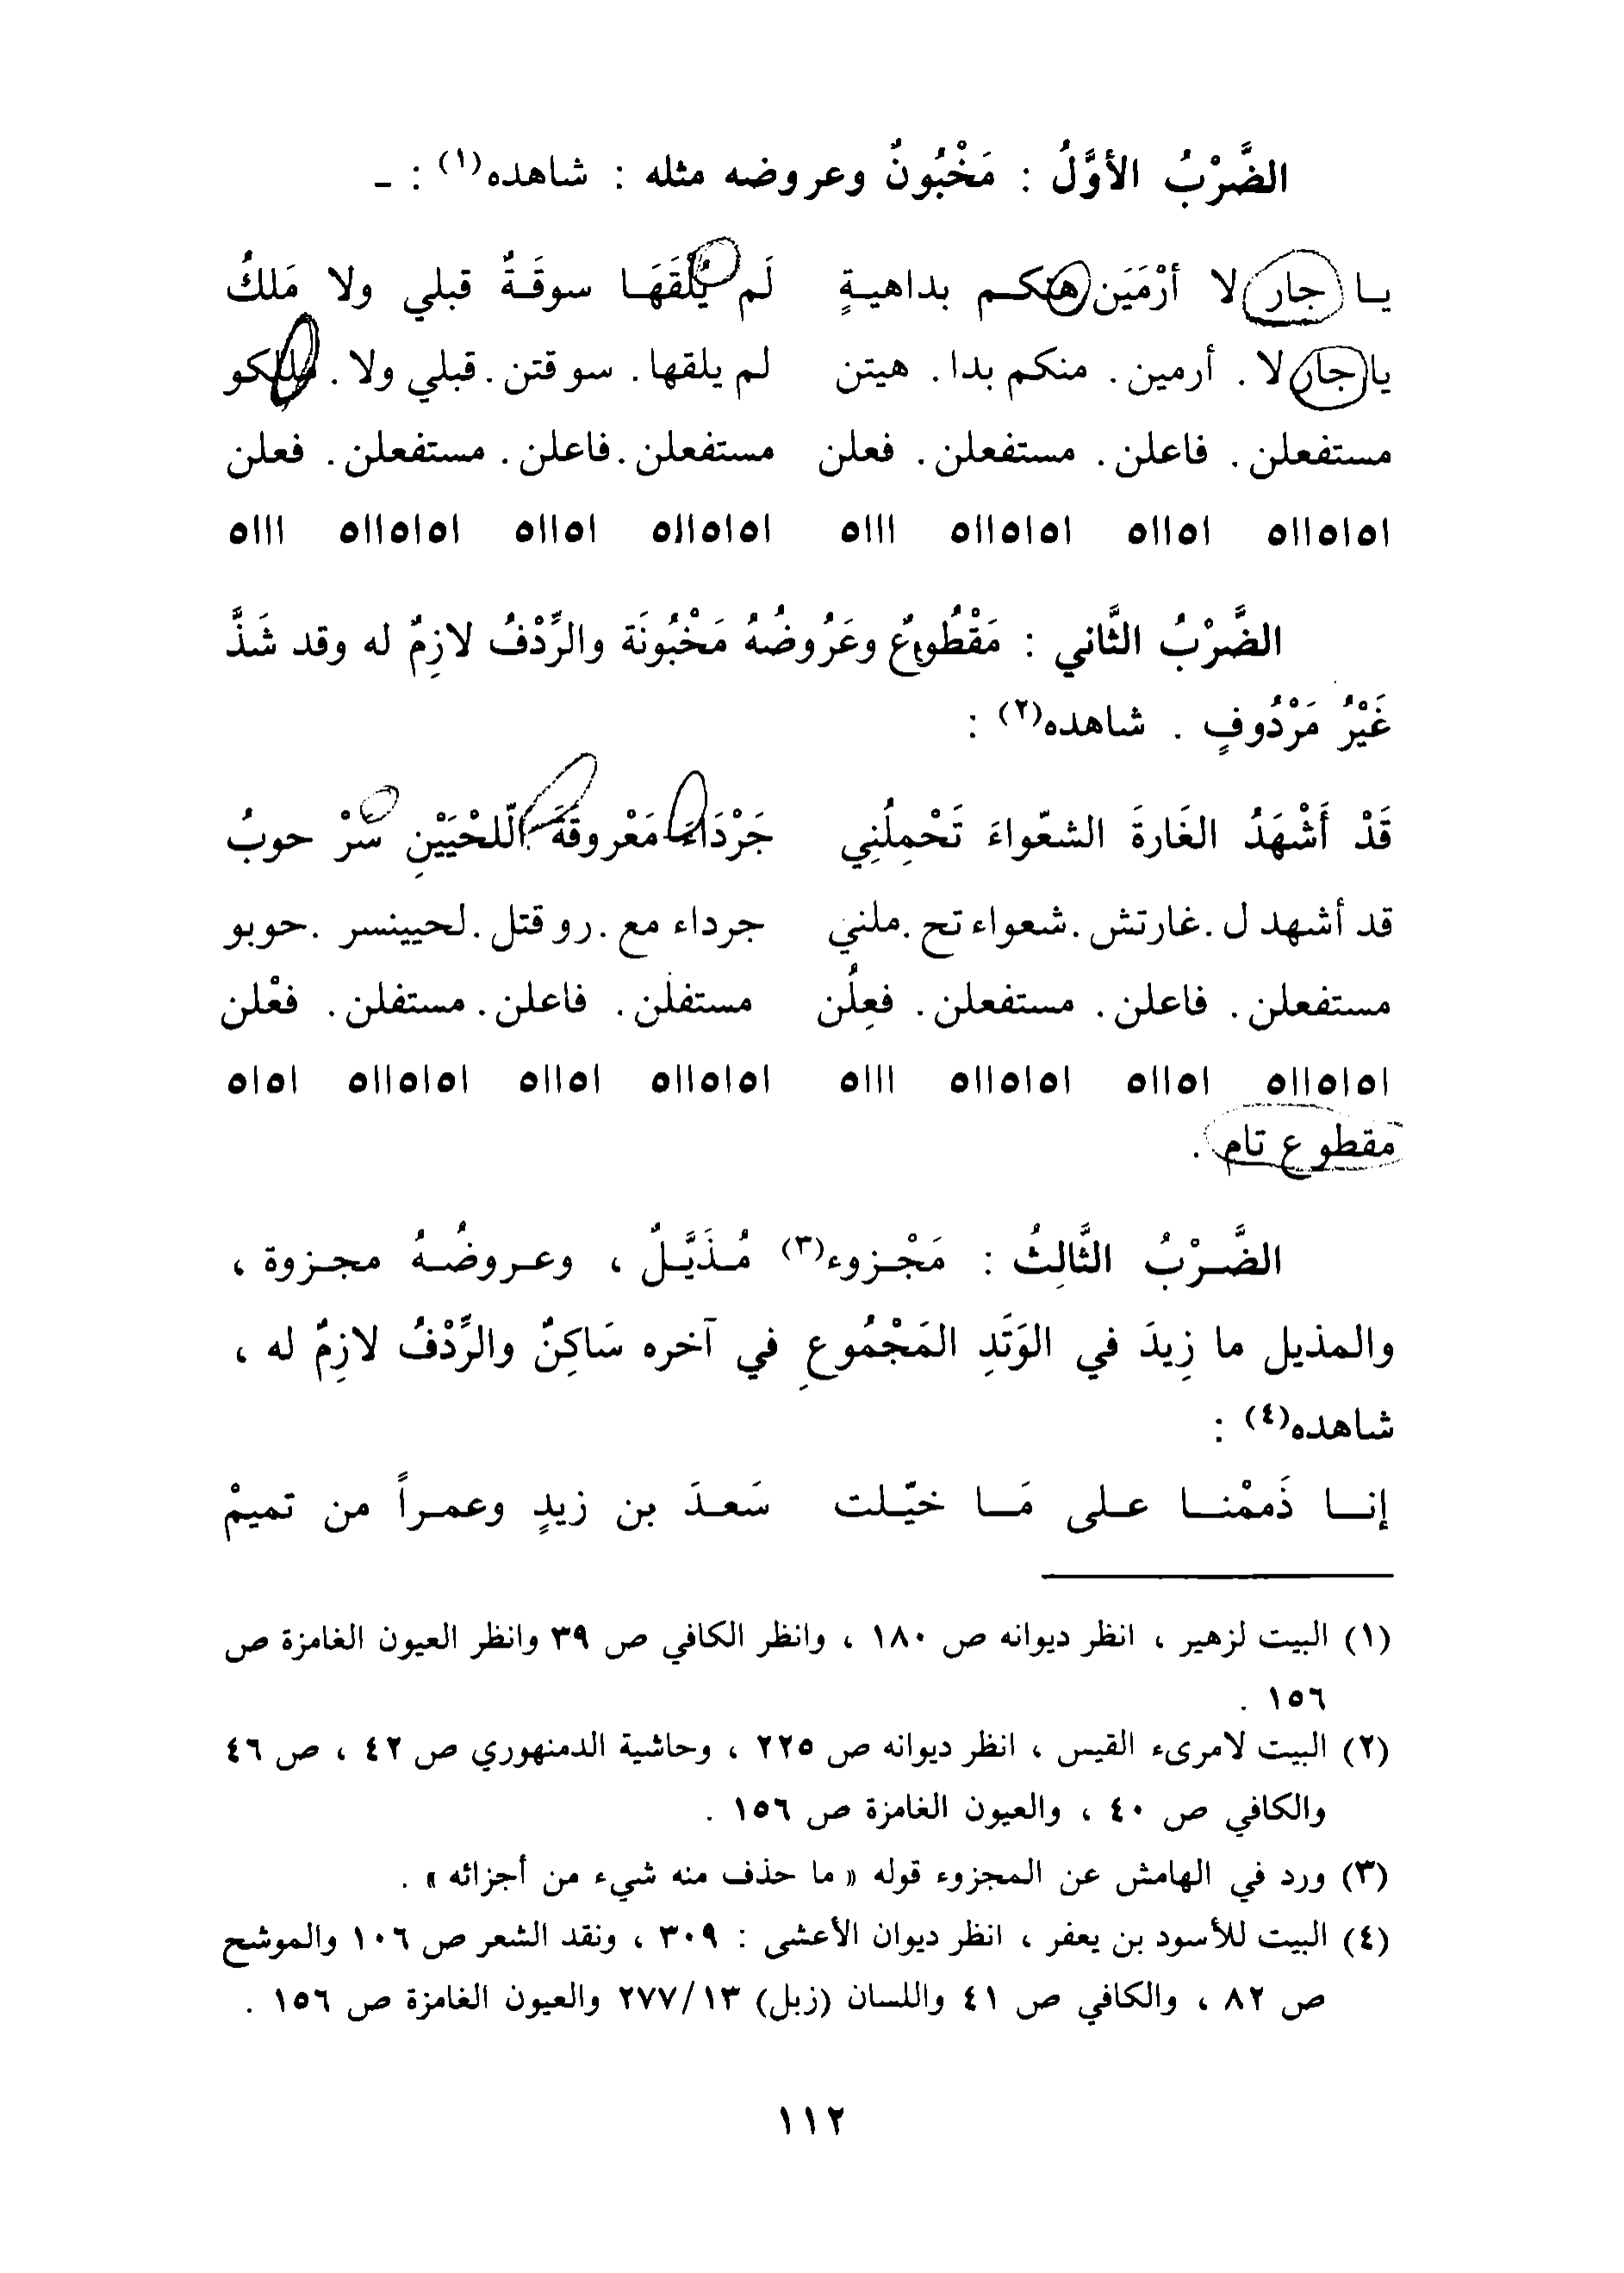 الضَّرْبُ الأوَّلُ : مَخْبُونٌ وعروضه مثله : شاهده(١) : ـ
يـا جار لا أرْمَيَن هنكـم بداهيـةٍ لَم يُلْقَهَـا سوقَـةٌ قبلي ولا مَلكُ
يا جار لا . أرمين . منكم بدا . هيتن لم يلقها . سوقتن . قبلي ولا . مللكو
مستفعلن . فاعلن . مستفعلن . فعلن مستفعلن . فاعلن . مستفعلن . فعلن
ا٥ا٥اا٥ ا٥اا٥ ا٥ا٥اا٥ ااا٥ ا٥ا٥اا٥ ا٥اا٥ ا٥ا٥اا٥ ااا٥
الضَّرْبُ الثَّاني : مَقْطُوعٌ وعَرُوضُهُ مَخْبُونَة والرِّدْفُ لازِمٌ له وقد شَذَّ
غَيْرُ مَرْدُوفٍ . شاهده(٢) :
قَدْ أَشْهَدُ الغَارةَ الشعّواءَ تَحْمِلُنِي جَرْدَاءَ مَعْروقَةَ الّلحْيَيْنِ سَرْ حوبُ
قد أشهد ل . غارتش . شعواء تح . ملني جرداء مع . رو قتل . لحيينسر . حوبو
مستفعلن . فاعلن . مستفعلن . فعِلُن مستفلن . فاعلن . مستفلن . فعْلن
ا٥ا٥اا٥ ا٥اا٥ ا٥ا٥اا٥ ااا٥ ا٥ا٥اا٥ ا٥اا٥ ا٥ا٥اا٥ ا٥ا٥
مقطوع تام .
الضَّـرْبُ الثَّالِثُ : مَجْـزوء(٣) مُـذَيَّـلٌ ، وعـروضُـهُ مجـزوة ،
والمذيل ما زِيدَ في الوَتَدِ المَجْمُوعِ في آخره سَاكِنٌ والرِّدْفُ لازِمٌ له ،
شاهده(٤) :
إنـا ذَممْنـا علـى مَـا خيّـلت سَعـدَ بن زيدٍ وعمـراً من تميمْ
(١) البيت لزهير ، انظر ديوانه ص ١٨٠ ، وانظر الكافي ص ٣٩ وانظر العيون الغامزة ص
١٥٦ .
(٢) البيت لامرىء القيس ، انظر ديوانه ص ٢٢٥ ، وحاشية الدمنهوري ص ٤٢ ، ص ٤٦
والكافي ص ٤٠ ، والعيون الغامزة ص ١٥٦ .
(٣) ورد في الهامش عن المجزوء قوله « ما حذف منه شيء من أجزائه » .
(٤) البيت للأسود بن يعفر ، انظر ديوان الأعشى : ٣٠٩ ، ونقد الشعر ص ١٠٦ والموشح
ص ٨٢ ، والكافي ص ٤١ واللسان (زبل) ٢٧٧/١٣ والعيون الغامزة ص ١٥٦ .
١١٢